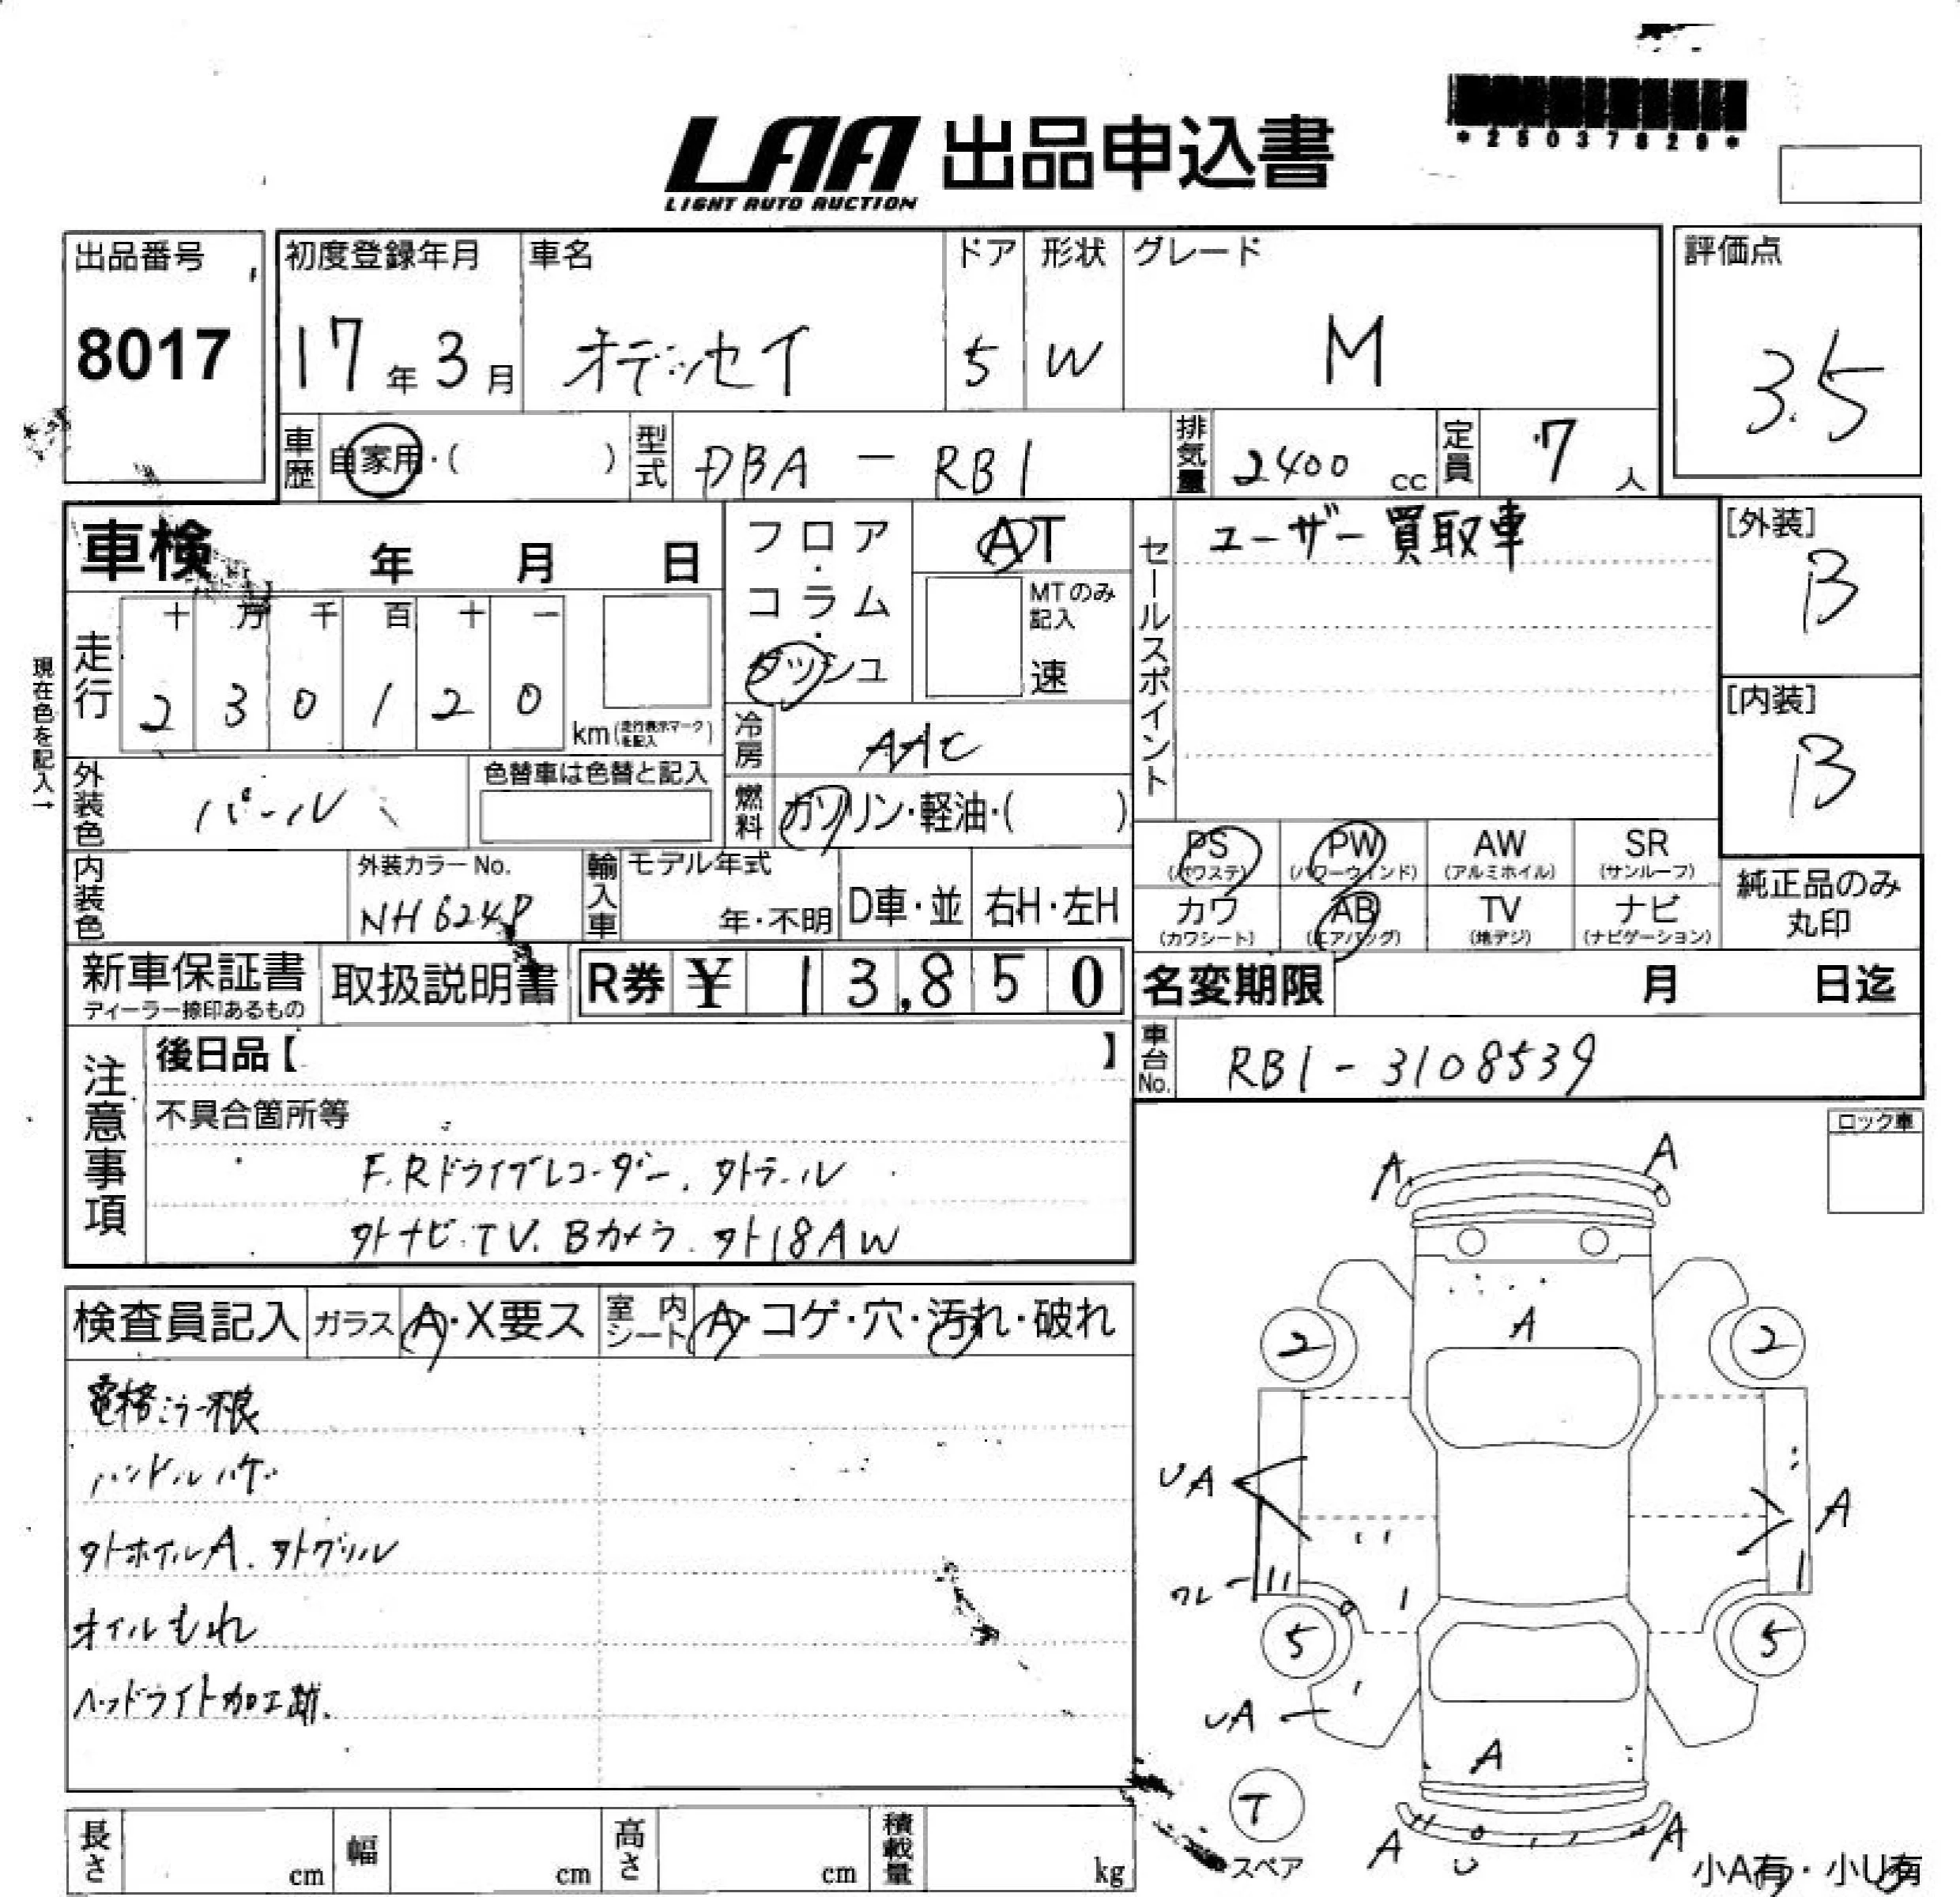 *25037829*
LAA 出品申込書
LIGHT AUTO AUCTION
出品番号
8017
初度登録年月
17年3月
車名
オデッセイ
ドア
5
形状
W
グレード
M
評価点
3.5
車歴 自家用・( )
型式 DBA - RB1
排気量 2400 cc
定員 7人
車検 年 月 日
フロア・コラム・ダッシュ
AT
MTのみ記入
速
セールスポイント
ユーザー買取車
[外装]
B
[内装]
B
現在色を記入→
走行
十 万 千 百 十 一
2 3 0 1 2 0
km (走行表示マークを記入)
冷房 AAC
外装色 パール
色替車は色替と記入
燃料 ガソリン・軽油・( )
PS (パワステ)
PW (パワーウインド)
AW (アルミホイル)
SR (サンルーフ)
カワ (カワシート)
AB (エアバッグ)
TV (地デジ)
ナビ (ナビゲーション)
純正品のみ
丸印
内装色
外装カラーNo.
NH624P
輸入車
モデル年式
年・不明
D車・並
右H・左H
新車保証書
ディーラー捺印あるもの
取扱説明書
R券 ¥ 13,850
名変期限 月 日迄
車台No. RB1-3108539
注意事項
後日品【 】
不具合箇所等
F.Rドライブレコーダー. 外マフラー
外ナビ.TV. Bカメラ. 外18AW
ロック車
検査員記入
ガラス A・X要ス
室内シート A・コゲ・穴・汚れ・破れ
電格ミラー不良
ハンドルハゲ
外ホイルA. 外グリル
オイルもれ
ヘッドライト加工跡.
A A
A
2 2
UA
A
ワレ
5 5
UA
A
T
スペア
A U A
小A有・小U有
長さ cm
幅 cm
高さ cm
積載量 kg